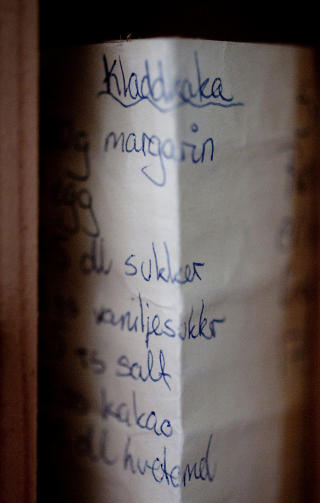 Kladdkaka
g margarin
egg
dl sukker
ts vaniljesukker
ts salt
kakao
dl hvetemel